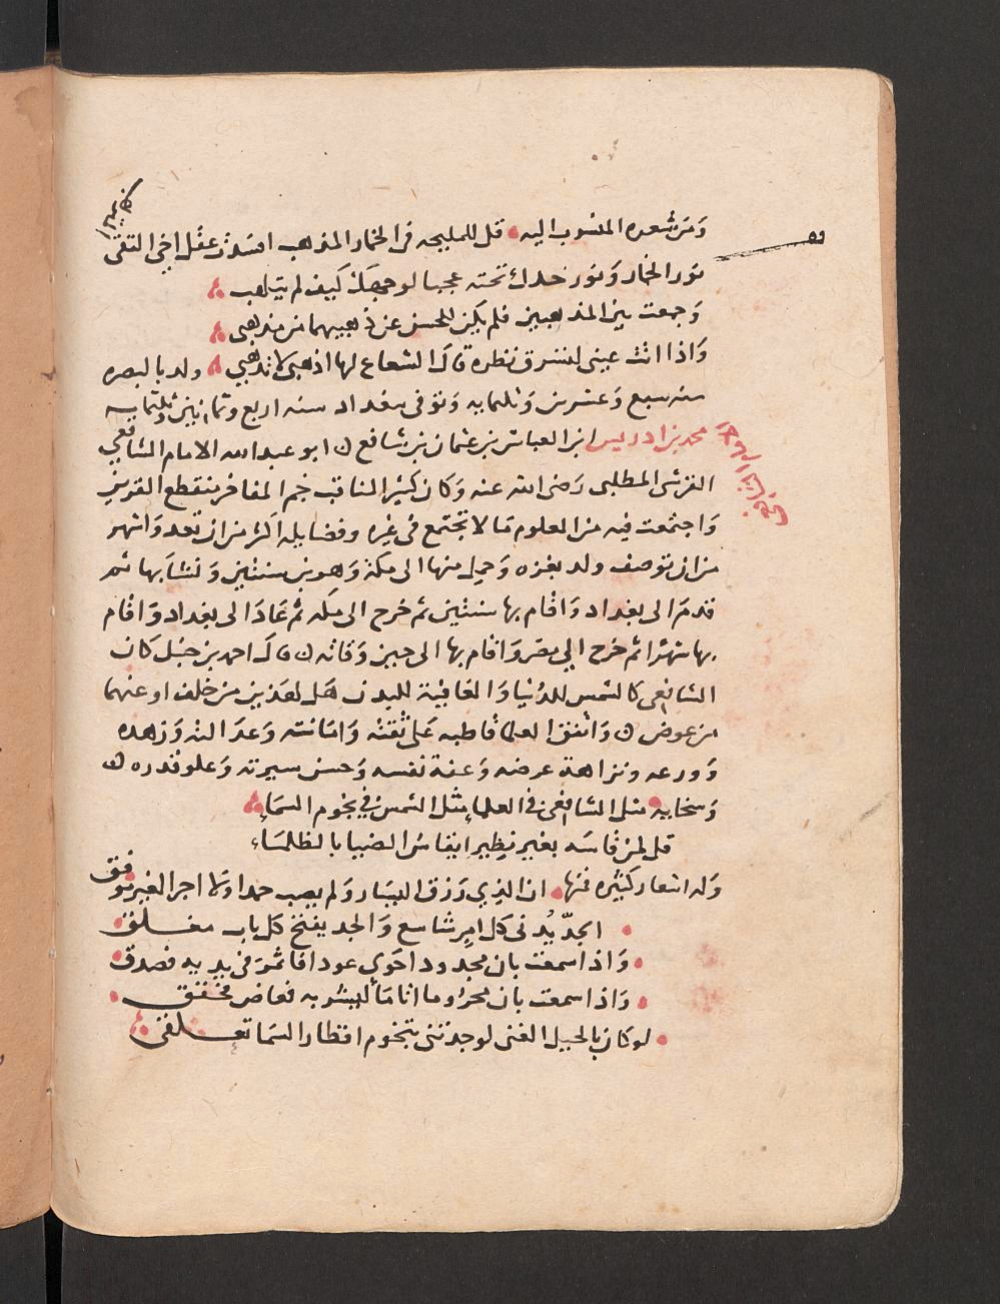 وَمَن شعره المنسوب اليه قل للمليحه فى الخمار المذهب افسدت عقل اخى التقى
نور الخمار وَنور خدك تحته عجبا لوجهك كيف لم يتلهب
وَجمعت بين المذهبين فلم يكن للحسن عن ذهبيهما من مذهبى
وَاذا اتت عينى لتسرق نظرة قال الشعاع لها اذهبى لا تذهبي ولد بالبصره
سنه سبع وَعشرين وَثلثمايه وَتوفى ببغداد سنه اربع وثمانين وثلثمايه
محمد بن ادريس ابن العباس بن عثمان بن شافع ابو عبدالله الامام الشافعي
الامام الشافعي
القرشى المطلبى رَضى الله عنه وَكان كثير المناقب جم المفاخر منقطع القرين
وَاجتمعت فيه من العلوم مَا لا تجتمع فى غيره وفضايله اكثر من ان تعد وَاشهر
من ان توصف ولد بغزه وَحمل منها الى مكة وَهو بن سنتين وَنشا بها ثم
قدمَ الى بغداد وَاقام بها سنتين ثم خرج الى مكه ثم عَادَ الى بغداد وَاقام
بها شهرا ثم خرج الي مصر وَاقام بها الى حين وَفاته قال احمد بن حنبل كان
الشافعى كالشمس للدُنيا وَالعَافية للبدن هَل لهذين من خلف او عنهما
من عوض وَاتفق العلما قاطبه عَلى ثقته وَامَانته وَعدَالته وَزهده
وَورعه ونزاهة عرضه وَعفة نفسه وَحسن سيرته وَعلو قدره
وَسخايه مثل الشافعى فى العلماءِ مثل الشمس في نجوم السمَاءِ
قل لمن قاسَه بغير نظير ايقاس الضيا بالظلمَاء
وَله اشعار كثيره فمنها ان الذِي رَزق اليسار وَلم يصب حمدا وَلا اجرا لغير موفق
الجدّ يُدنى كل امرٍ شاسع وَالجد يفتح كل باب مغلق
وَاذا سمعت بان مجدودا حَوي عودا فاثمرَ فى يديه فصدق
وَاذا سمعت بان محرُوما اتا مَاً ليشربه فغاض فحقق
لو كان بالحيل الغنى لوجدتنى بنجوم اقطار السمَا تعلقى